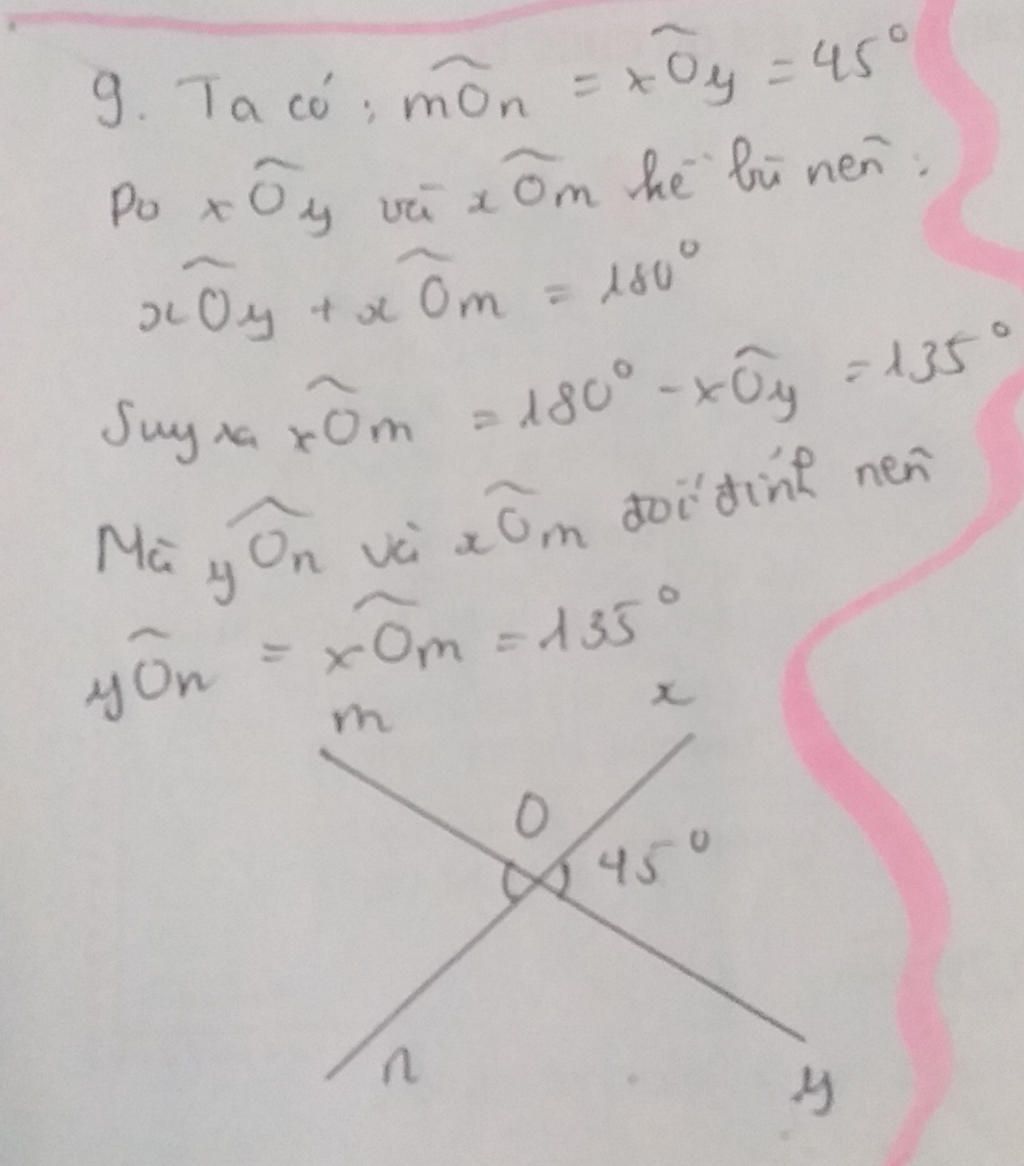 9. Ta có: mÔn = xÔy = 45°
Do xÔy và xÔm kề bù nên:
xÔy + xÔm = 180°
Suy ra xÔm = 180° - xÔy = 135°
Mà yÔn và xÔm đối đỉnh nên
yÔn = xÔm = 135°
m x
O
45°
n
y